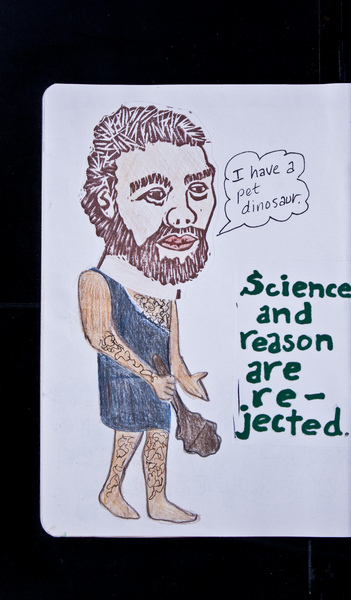 I have a
pet
dinosaur.
Science
and
reason
are
re-
jected.